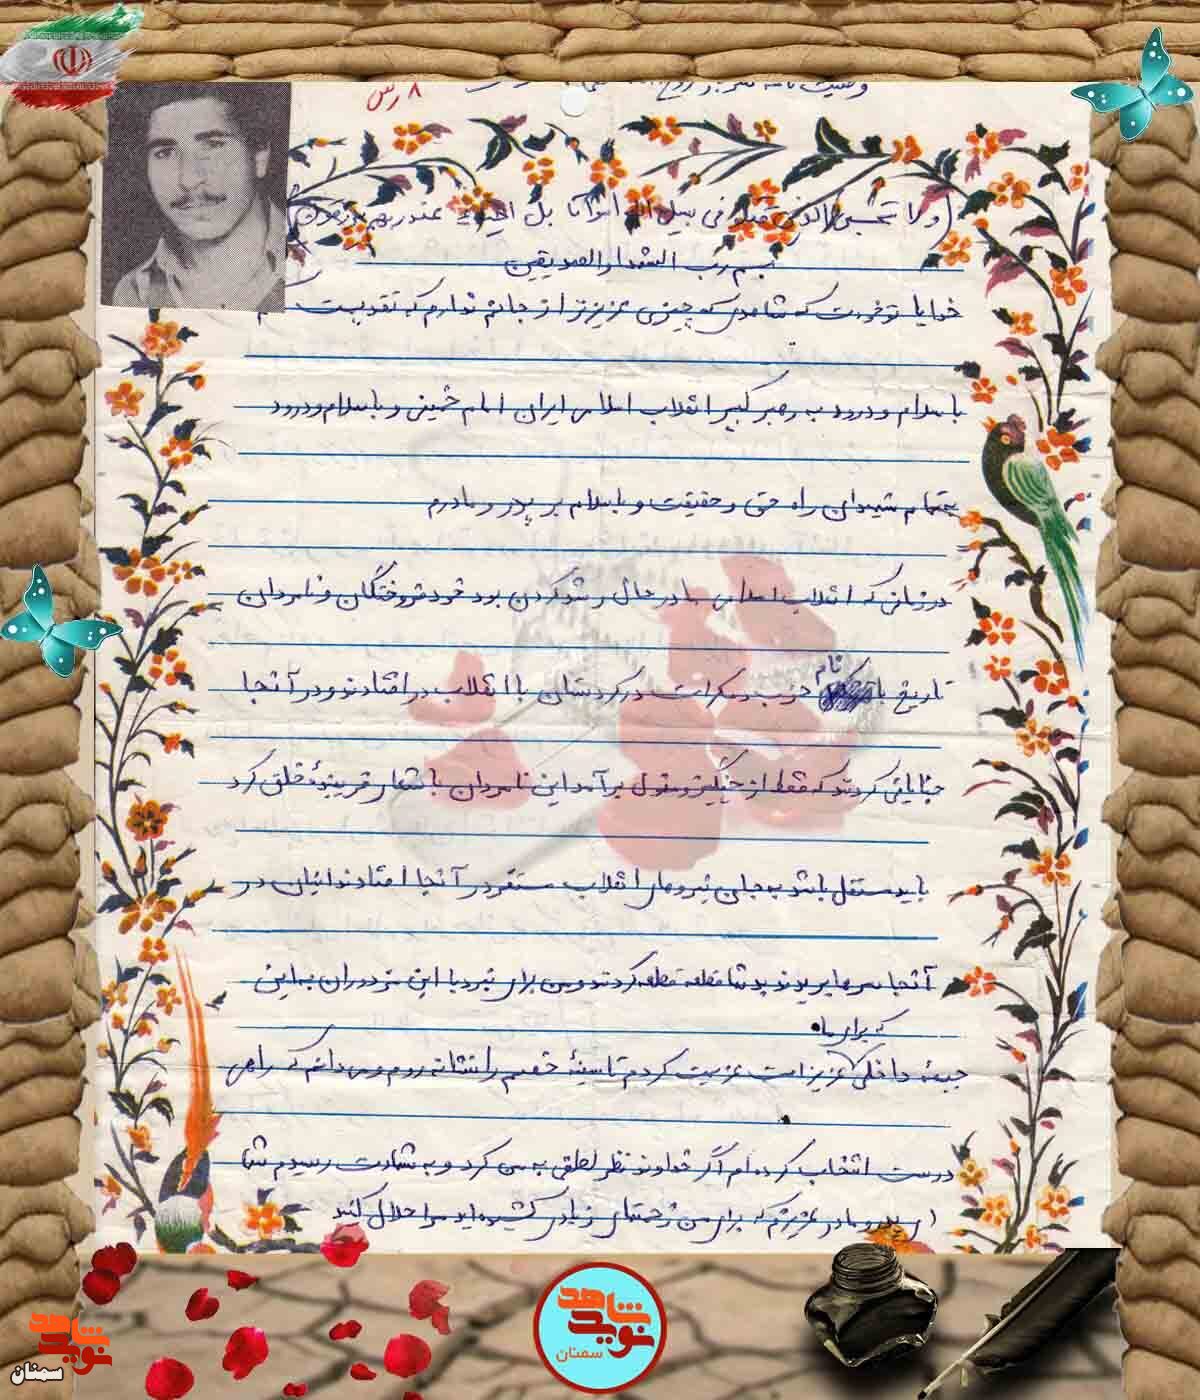 وصیت نامه
۸ رس
(ولا تحسبن الذین قتلو فی سبیل الله امواتا بل احیاء عندربهم یرزقون)
بسم رب الشهدا والصدیقین
خدایا تو خودت که شاهدی که چیزی عزیزتر از جانم ندارم که تقدیمت کنم
با سلام و درود به رهبر کبیر انقلاب اسلامی ایران امام خمینی و با سلام و درود
بتمام شهیدان راه حق و حقیقت و با سلام بر پدر و مادرم
در زمانی که انقلاب اسلامی ما در حال رشد کردن بود خودفروختگان و نامردان
تاریخ با نام حزب دمکرات در کردستان با انقلاب در افتادند و در آنجا
جنایاتی کردند که فقط از چنگیز و مغول بر آمد این نامردان با شعار فریبندهٔ خلق کرد
باید مستقل باشد به جان نیروهای انقلاب مستقر در آنجا افتادند اینان در
آنجا سرها بریدند بدنها قطعه قطعه کردند و من برای نبرد با این مزدوران به این
جبههٔ داخلی که برای ما عزیز است عزیمت کردم تا سینهٔ خصم را نشانه روم و می دانم که راهی
درست انتخاب کرده ام اگر خداوند نظر لطفی به من کرد و به شهادت رسیدم شما
ای پدر و مادر عزیزم که برای من زحمتهای زیادی کشیده اید مرا حلال کنید
نوید شاهد
سمنان
نوید شاهد
سمنان